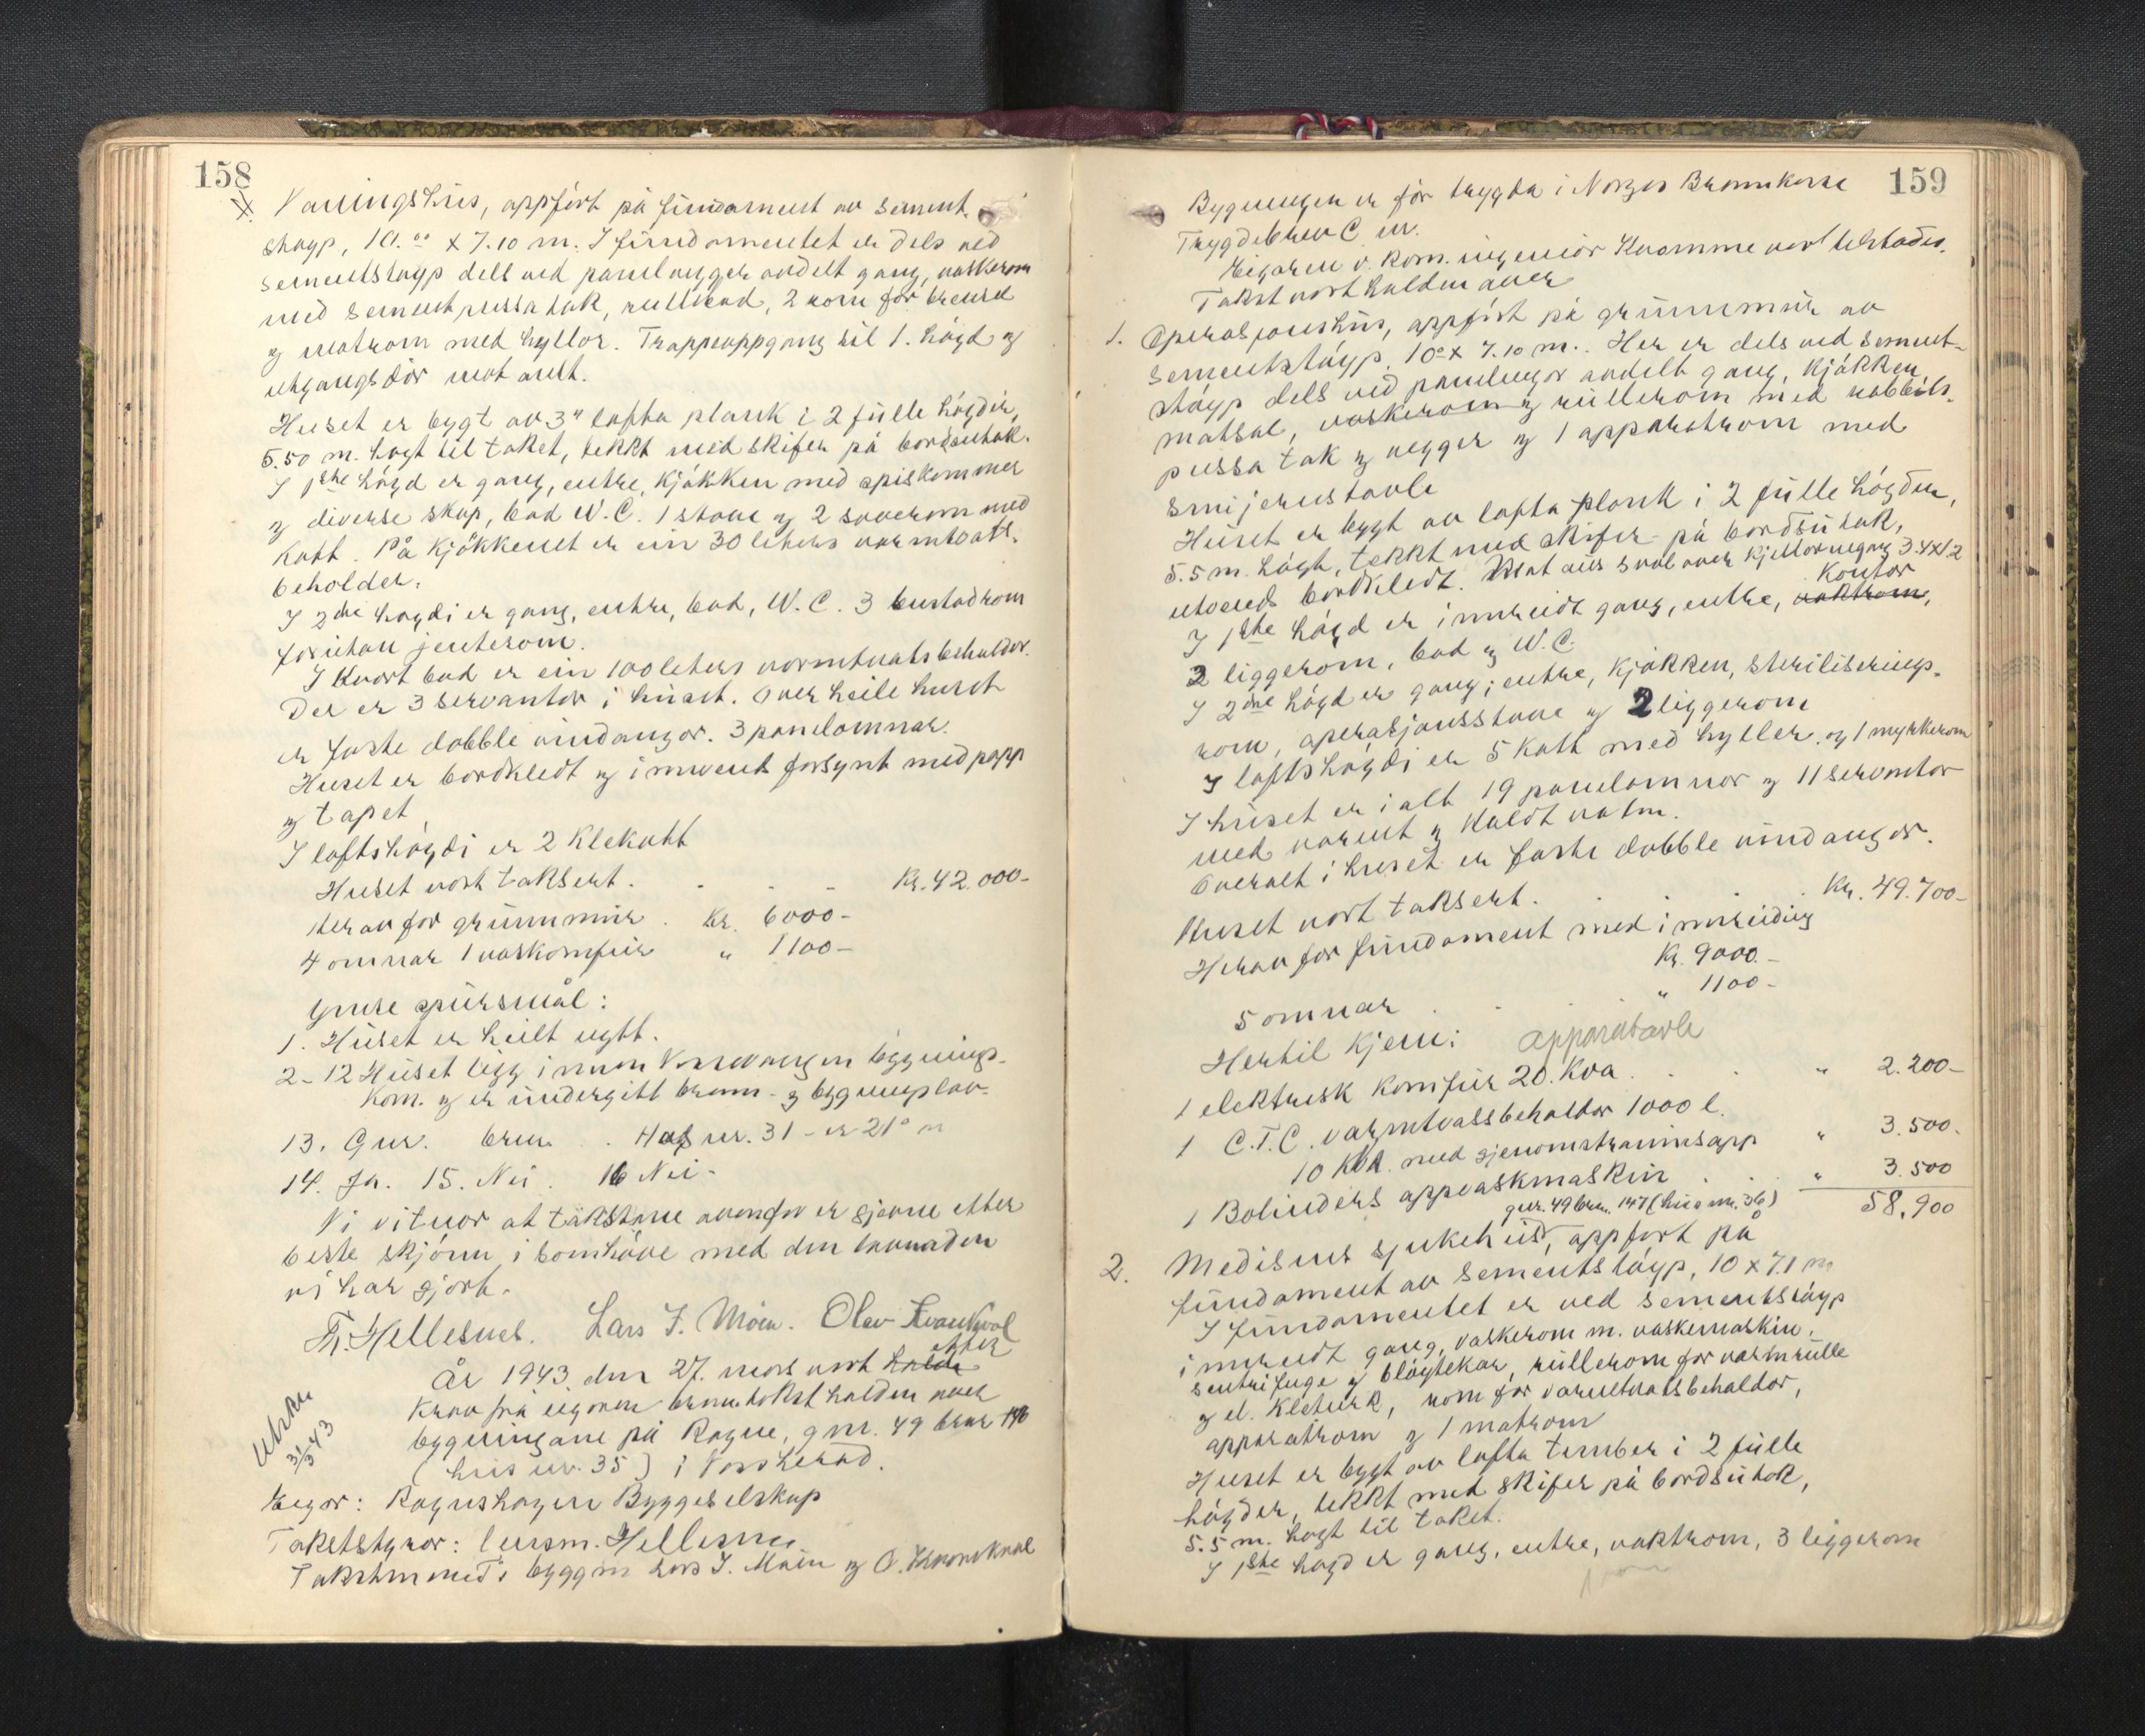 158
X. Vaningshus, oppført på fundament av sement-
støyp, 10.00 x 7.10 m. I fundamentet er dels ved
sementstøyp dels ved panelvegger avdelt gang, vaskerom
med sementpussa tak, rullebod, 2 rom for brensel
og matrom med hyllor. Trappeoppgang til 1. høgd og
utgangsdør mot aust.
Huset er bygt av 3" lafta plank i 2 fulle høgdir,
5.50 m. høgt til taket, tekkt med skifer på bordsutak.
I 1ste høgd er gang, entre, kjøkken med spiskammer
og diverse skap, bad W.C. 1 stove og 2 soverom med
kott. På kjøkkenet er ein 30 liters varmtvatt-
beholder.
I 2dre høgdi er gang, entre, bad, W.C. 3 bustadrom
forutan jenterom.
I kvart bad er ein 100 liters varmtvatsbeholdor.
Der er 3 servantor i huset. Over heile huset
er faste dobble vindaugor. 3 panelomnar.
Huset er bordkledt og innvent forsynt med papp
og tapet
I loftshøgdi er 2 klekott
Huset vort taksert . - - - Kr. 42.000-
Herav for grunnmur . Kr. 6000-
4 omnar 1 vaskomfur " 1100-
Ymse spursmål:
1. Huset er heilt nytt.
2-12 Huset ligg innom Vossevangen bygnings-
kom. og er undergitt brann- og bygningslov.
13. Gnr. brnr. . Hus nr. 31 -
14. Ja. 15. Nei. 16 Nei-
Vi vitnor at takstane ovanfor er gjevne etter
beste skjønn i samhøve med den lovnaden
vi har gjort.
Tr. Hellesnes. Lars J. Møen. Olav Kvarekval
etter
År 1943 den 27. mars vort halde
krav frå eigaren branntakst halden over
bygningane på Rogne, gnr. 49 brnr 146
(hus nr. 35) i Voss herad.
Utskr
31/3 43
Eigar: Rognshagen Byggeselskap
Takststyrar: lensm. Hellesnes
Takstmenn: byggm Lars J. Møen og O. Kvarekval
159
Bygningen er før trygda i Norges Brannkasse
Trygdebrev C nr.
Eigaren v. kom. ingeniør Kvamme vort tilstades.
Takst vort halden over
1. Operasjonshus, oppført på grunnmur av
sementstøyp 10.0 x 7.10 m. Her er dels ved sement-
støyp dels ved panelvegger avdelt gang, kjøkken,
matsal, vaskerom og rullerom med rabbits-
pussa tak og vegger og 1 apparatrom med
smijernstavle
Huset er bygt av lafta plank i 2 fulle høgder,
5.5 m. høgt, tekkt med skifer på bordsutak,
utvends bordkledt. Mot aus sval over kjellarnegang 3.4x1.2
kontor
I 1ste høgd er innreidt gang, entre, vaktrom,
3 liggerom, bad og W.C.
I 2dre høgd er gang, entre, kjøkken, steriliserings-
rom, operasjonsstove og 2 liggerom
I loftshøgdi er 5 kott med hyller og 1 myrkerom
I huset er i alt 19 panelomnor og 11 servantor
med varmt og kaldt vatn.
Overalt i huset er faste dobble vindaugor.
Huset vort taksert . . . . Kr. 49.700-
Herav for fundament med innreiding
Kr. 9000.-
5 omnar . . " 1100-
Hertil kjem: apparatavle
1 elektrisk komfur 20. Kva . . " 2.200-
1 C.T.C. varmtvassbeholdar 1000 l.
10 KVA. med gjenomstrømmsapp " 3.500-
1 Bolinders oppvaskmaskin . . " 3.500
58.900
gnr. 49 brnr. 147 (hus nr. 36)
2. Medisins sjukehus, oppført på
fundament av sementstøyp, 10 x 7.1 m
I fundamentet er ved sementstøyp
innreidt gang, vaskerom m. vaskemaskin,
sentrifuge og bløytekar, rullerom for varmrulle
og el. kletørk, rom for varmtvatsbeholdar,
apparatrom og 1 matrom
Huset er bygt av lafta tember i 2 fulle
høgder, tekkt med skifer på bordsutak,
5.5 m. høgt til taket.
I 1ste høgd er gang, entre, vaktrom, 3 liggerom